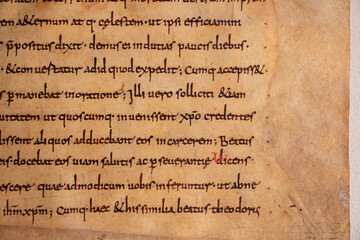 a&ernum at q· celestem· ut ipsi efficiamini
p̄positus dixit· demus ei indutias paucis diebus·
· &conuertatur adid quod expedit; Cumq· accepiss&
s p̄manebat inoratione; Illi uero solliciti &iam
uitatem ut quoscumq· inuenissent xp̄o credentes
dissent aliquos adducebant eos incarcerem; Beatus
eis· docebat eos uiam salutis ac p̄seuerantię dicens·
escere quae admodicum uobis inferuntur· ut abne
ih̄m xp̄m; Cumq· haec &hissimilia beatus theodoris